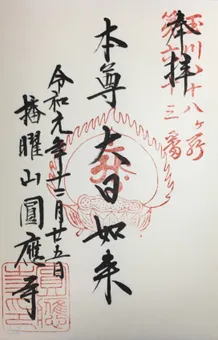 奉拝
玉川八十八ヶ所
第六十三番
本尊 大日如来
令和元年十二月廿五日
山圓應寺